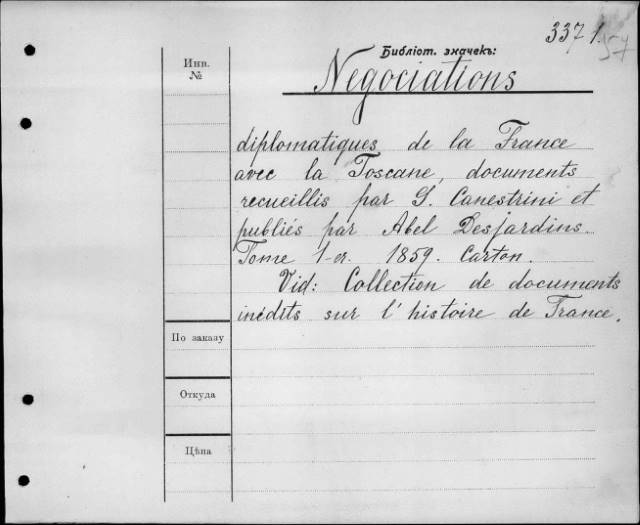 337 1.
57
Библіот. значекъ:
Инв.
№
Negociations
diplomatiques de la France
avec la Toscane, documents
recueillis par G. Canestrini et
publiés par Abel Desjardins.
Tome 1-er. 1859. Carton.
Vid: Collection de documents
inédits sur l'histoire de France.
По заказу
Откуда
Цѣна